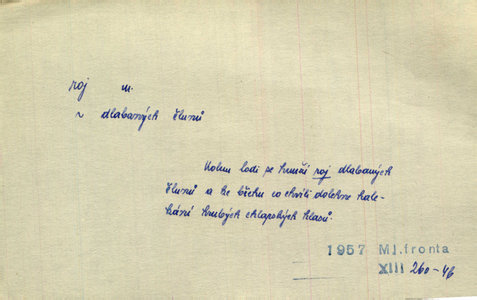 roj m.
~ dlabaných člunů
Kolem lodi se hemží roj dlabaných
člunů a ke břehu co chvíli dolehne hala-
kání hrubých chlapských hlasů.
1957 Ml. fronta
XIII 260-46